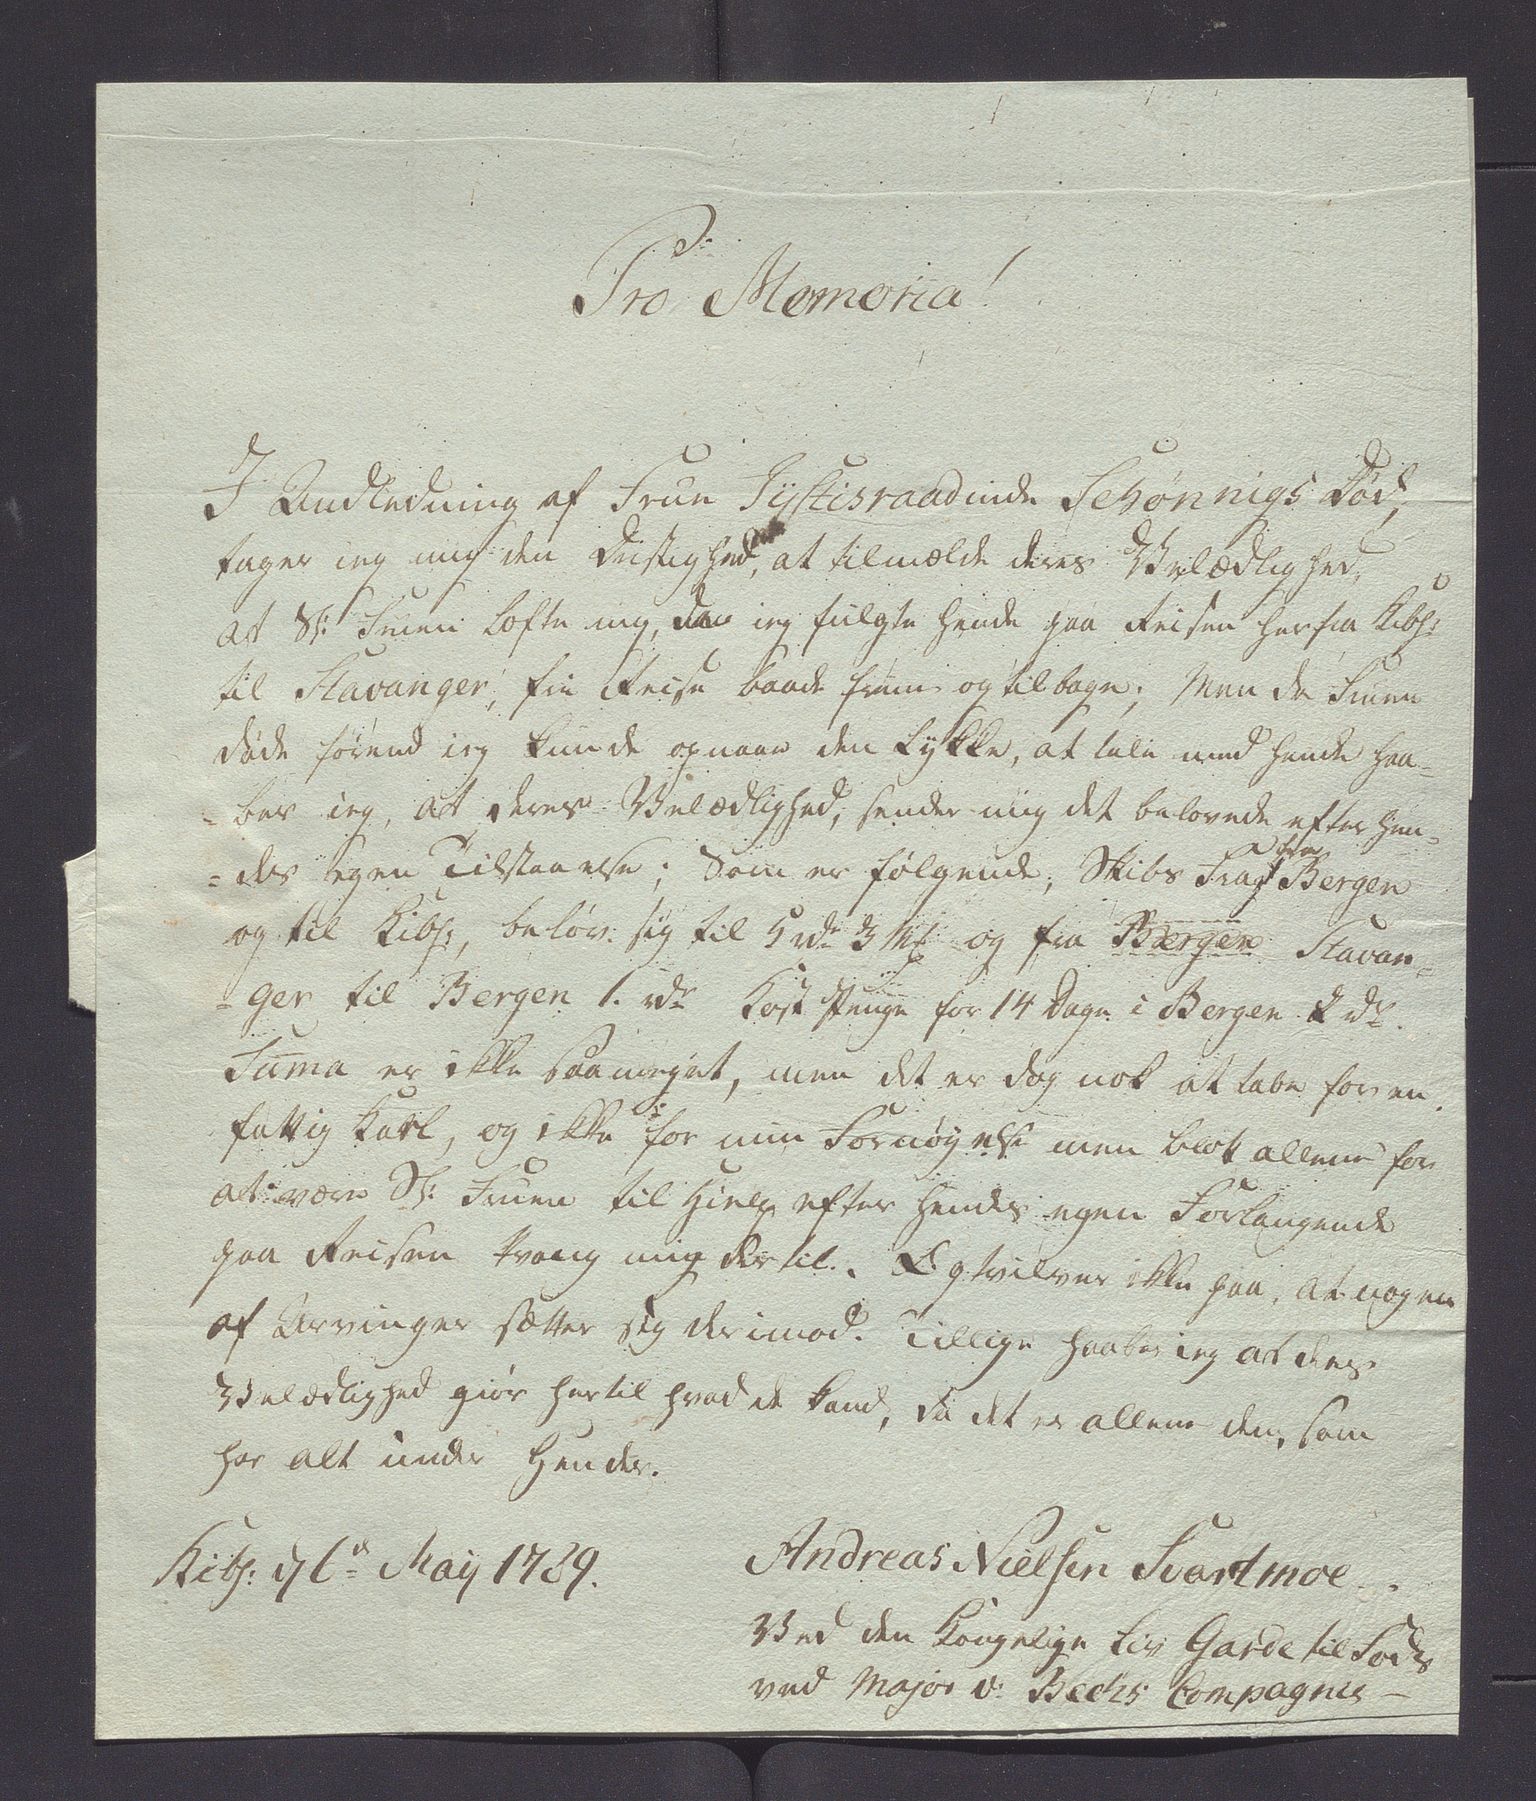 Pro Memoria!
I Andledning af Frue Jystisraadinde Schønnigs Død,
tager ieg mig den Dristighed, at tilmælde deres Velædlighed,
at Sl: Fruen lofte mig, da ieg fulgte hende paa Reisen herfra Kibh:
til Stavanger, frie Reise baade frem og tilbage; Men da Fruen
døde førend ieg kunde opnaae den Lykke, at tale med hende haa-
-ber ieg, at deres Velædlighed, sender mig det belovede efter hen-
-des egen Tilstaaelse; Som er følgende, Skibs Fragt fra Bergen
og til Kibh:, beløv: sig til 5 rdr 3 Mk og fra Bergen Stavan-
-ger til Bergen 1. rdr Kost Penge for 14 Dage i Bergen 2 rdr.
Suma er ikke saameget, men det er dog nok at tabe for en
fattig Karl, og ikke for min Fornøyelse men blot allene for
at være Sl: Fruen til Hielp efter hendes egen Forlangende
paa Reisen tvang mig dertil. Og tvilver ikke paa, at nogen
af Arvinger sætter sig derimod. Tillige haaber ieg at deres
Velædlighed giør hertil hvad de kand, da det er allene dem, som
har alt under Hender.
Kibh: d 6te May 1789.
Andreas Nielsen Svartmoe
Ved den Kongelige Liv Garde til Fods
ved Major v: Becks Compagnie